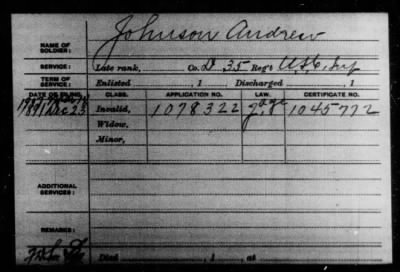 Johnson Andrew
NAME OF SOLDIER:
SERVICE: Late rank, Co. D, 35 Reg't U.S.C. Inf
TERM OF SERVICE: Enlisted , 1 Discharged , 1
DATE OF FILING. CLASS. APPLICATION NO. LAW. CERTIFICATE NO.
1891 Dec 23 Invalid, 1078322 1045772
Widow,
Minor,
ADDITIONAL SERVICES:
REMARKS:
Died , 1 , at